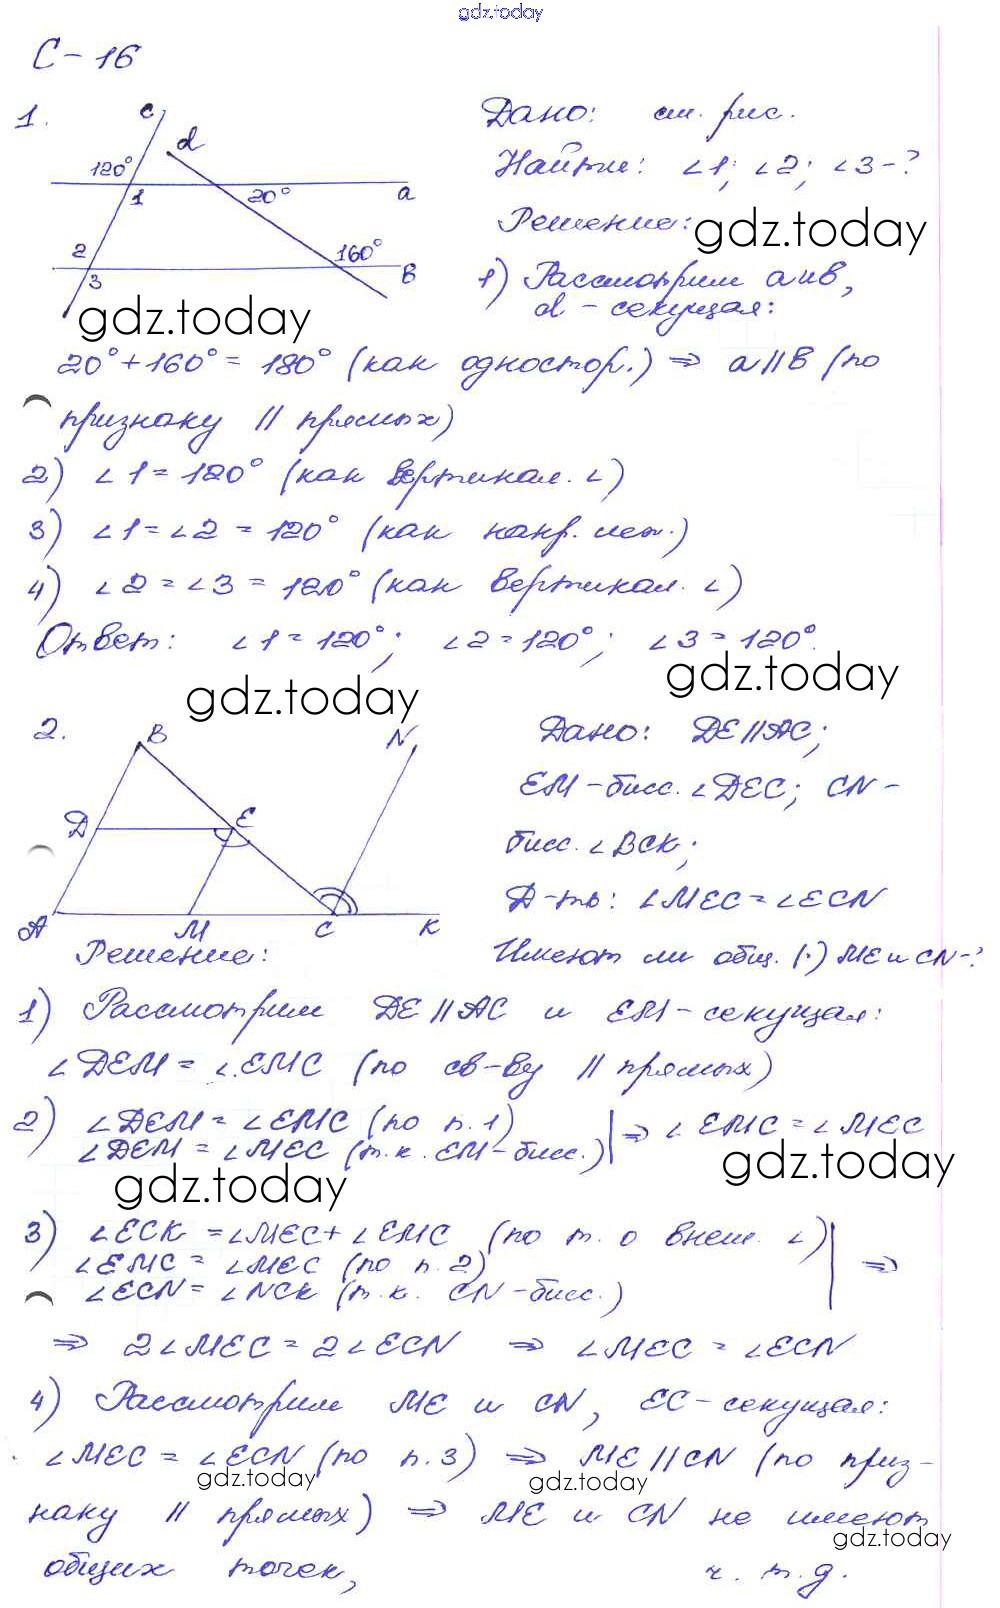 gdz.today
С-16
1.
c
d
120°
1
20°
a
2
3
160°
в
Дано: см. рис.
Найти: ∠1; ∠2; ∠3-?
Решение:
gdz.today
1) Рассмотрим a и в,
d - секущая:
gdz.today
20° + 160° = 180° (как одностор.) ⇒ a || в (по
признаку || прямых)
2) ∠1 = 120° (как вертикал. ∠)
3) ∠1 = ∠2 = 120° (как накр. леж.)
4) ∠2 = ∠3 = 120° (как вертикал. ∠)
Ответ: ∠1 = 120°; ∠2 = 120°; ∠3 = 120°.
gdz.today
gdz.today
2.
B
N
D
E
A
M
C
K
Дано: DE || AC;
EM - бисс. ∠DEC; CN -
бисс. ∠BCK;
Д-ть: ∠MEC = ∠ECN
Имеют ли общ. (·) ME и CN-?
Решение:
1) Рассмотрим DE || AC и EM - секущая:
∠DEM = ∠EMC (по св-ву || прямых)
2) ∠DEM = ∠EMC (по п. 1)
∠DEM = ∠MEC (т.к. EM - бисс.) | ⇒ ∠EMC = ∠MEC
gdz.today
gdz.today
3) ∠ECK = ∠MEC + ∠EMC (по т. о внеш. ∠)
∠EMC = ∠MEC (по п. 2) | ⇒
∠ECN = ∠NCK (т.к. CN - бисс.)
⇒ 2∠MEC = 2∠ECN ⇒ ∠MEC = ∠ECN
4) Рассмотрим ME и CN, EC - секущая:
∠MEC = ∠ECN (по п. 3) ⇒ ME || CN (по приз-
gdz.today
gdz.today
наку || прямых) ⇒ ME и CN не имеют
gdz.today
общих точек, ч. т. д.